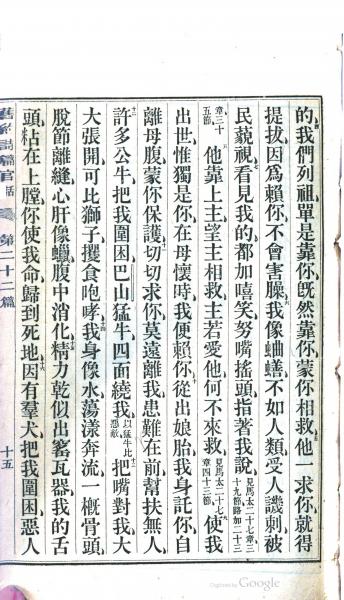 的我們列祖單是靠你旣然靠你蒙你相救他一求你就得
提拔因爲賴你不會害臊我像蛐蟮不如人類受人譏刺被
民藐視看見我的都加嘻笑努嘴搖頭指著我說見馬太二十七章三十九節路加二十三
章三十五節他靠上主望主相救主若愛他何不來救見馬太二十七章四十二節使我
出世惟獨是你在母懷時我便賴你從出娘胎我身託你自
離母腹蒙你保護切切求你莫遠離我患難在前幫扶無人
許多公牛把我圍困巴山猛牛四面繞我以猛牛比惡敵把嘴對我大
大張開可比獅子攫食咆哮我身像水蕩漾奔流一槪骨頭
脫節離縫心肝像蠟腹中消化精力乾似出窰瓦器我的舌
頭粘在上膛你使我命歸到死地因有羣犬把我圍困惡人
第二十二篇
十五
Digitized by Google